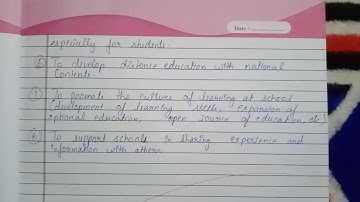 Date :
especially for students.
⑥ To develop distence education with national
Contents.
⑦ To promote the culture of learning at school
(development of learning skills, expansion of
optional education, open source of education, etc)
⑧ To support schools in sharing experience and
information with others